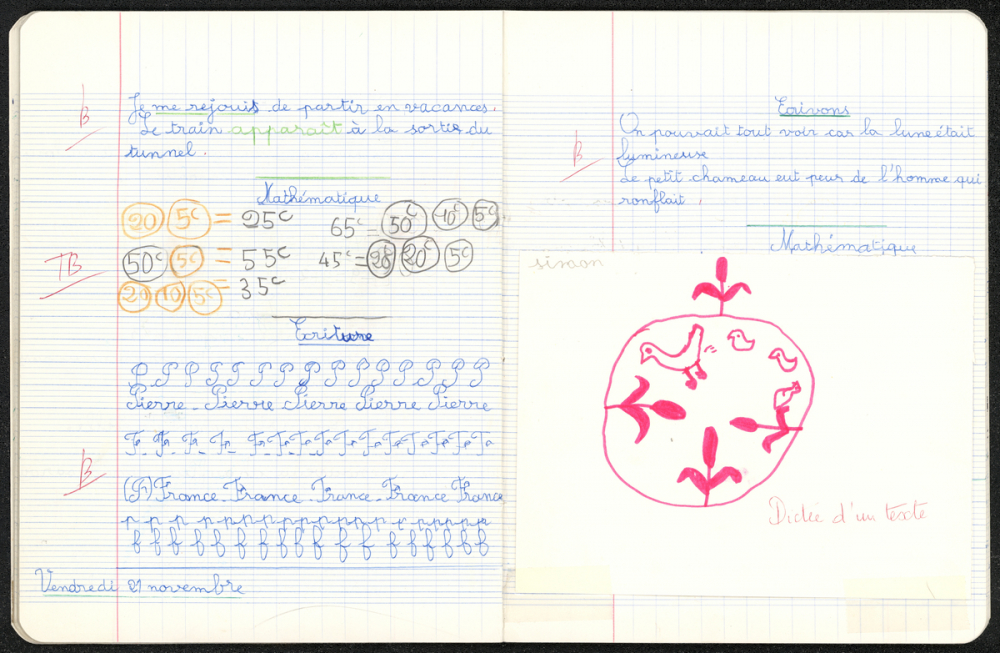 B
Je me rejouis de partir en vacances.
Le train apparaît à la sortie du
tunnel.
Mathématique
20 5c = 25c
65c = 50c 10c 5c
TB
50c 5c = 55c
45c = 20c 20c 5c
20 10 5c = 35c
Ecriture
P P P P P P P P P P P P P P
Pierre Pierre Pierre Pierre Pierre
F F F F F F F F F F F F F F
B
(F) France France France France France
p p p p p p p p p p p p p p p p p p
f f f f f f f f f f f f f f f f f
Vendredi 21 novembre
Ecrivons
B
On pouvait tout voir car la lune était
lumineuse
Le petit chameau eut peur de l'homme qui
ronflait.
Mathématique
simon
Dictée d'un texte